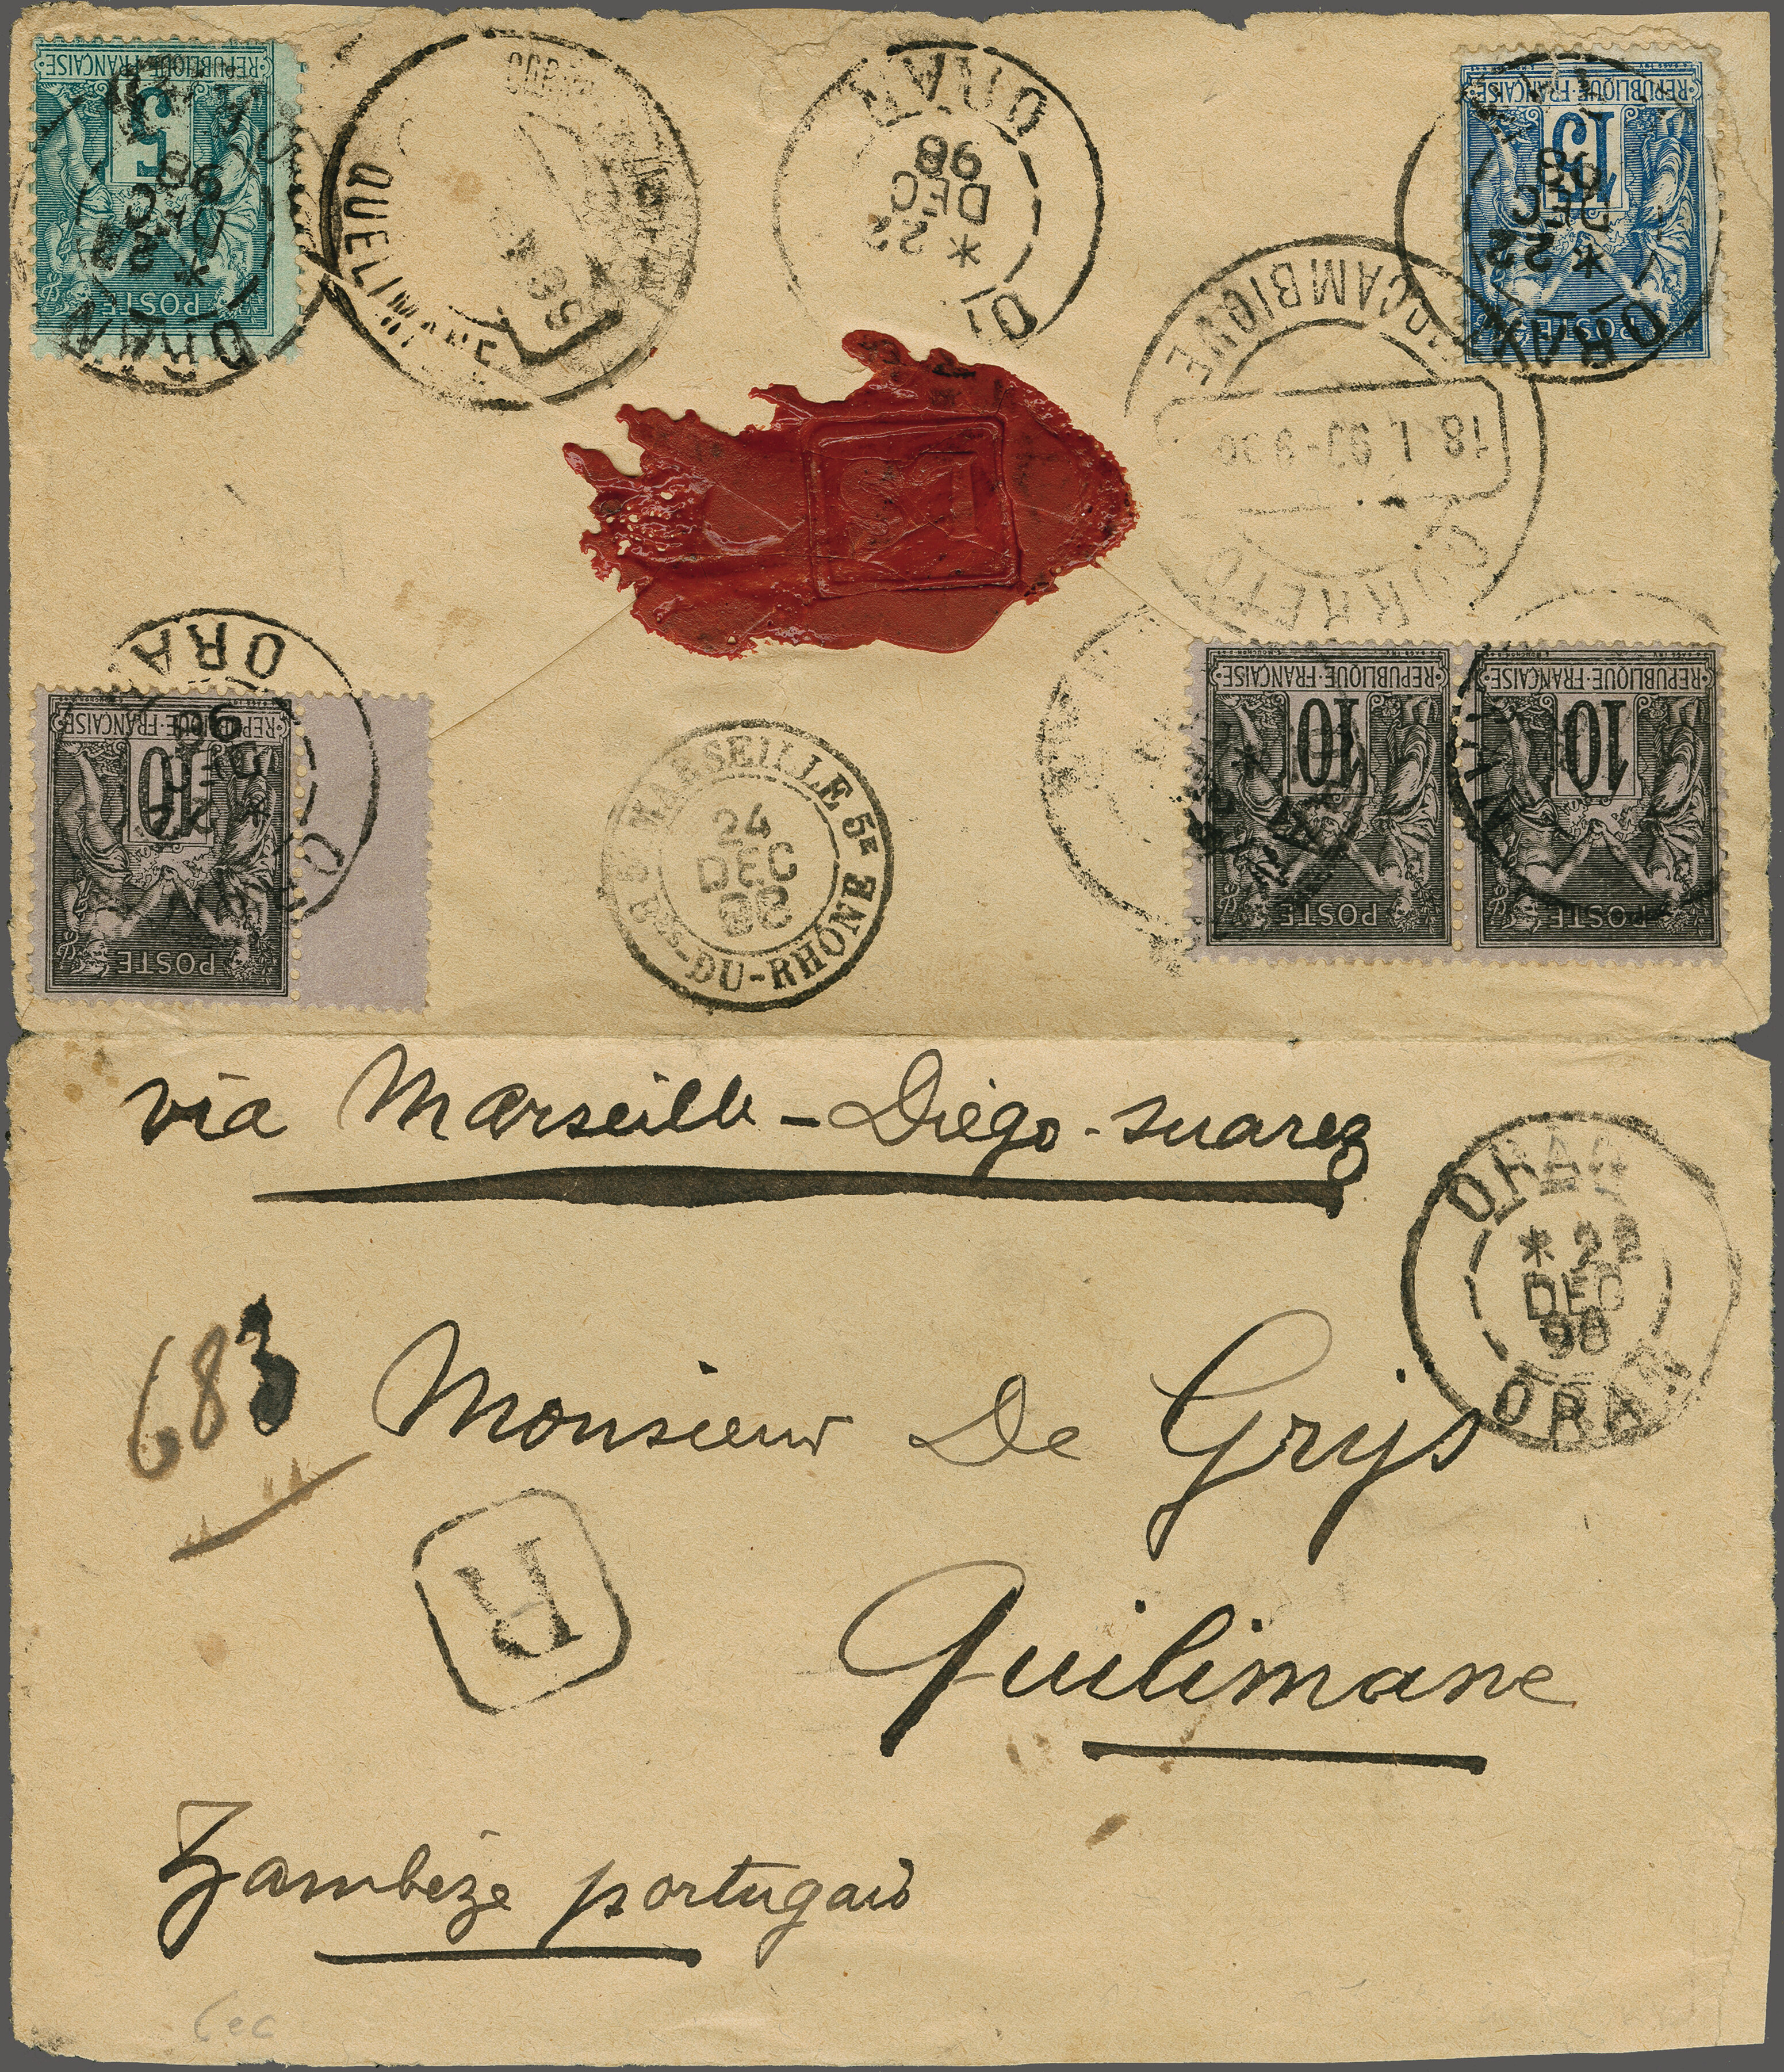 REPUBLIQUE FRANÇAISE
5
POSTE
ORAN
* 22
DEC
98
QUELIMANE
ORAN
* 22
DEC
98
REPUBLIQUE FRANÇAISE
15
POSTE
ORAN
* 22
DEC
98
MOÇAMBIQUE
18 1
CORREIO
REPUBLIQUE FRANÇAISE
10
POSTE
ORA
MARSEILLE 5E
24
DEC
98
BES-DU-RHÔNE
REPUBLIQUE FRANÇAISE
10
POSTE
REPUBLIQUE FRANÇAISE
10
POSTE
via Marseille - Diégo-Suarez
ORAN
* 22
DEC
98
ORAN
683
Monsieur De Grijs
R
Quilimane
Zambèze portugais